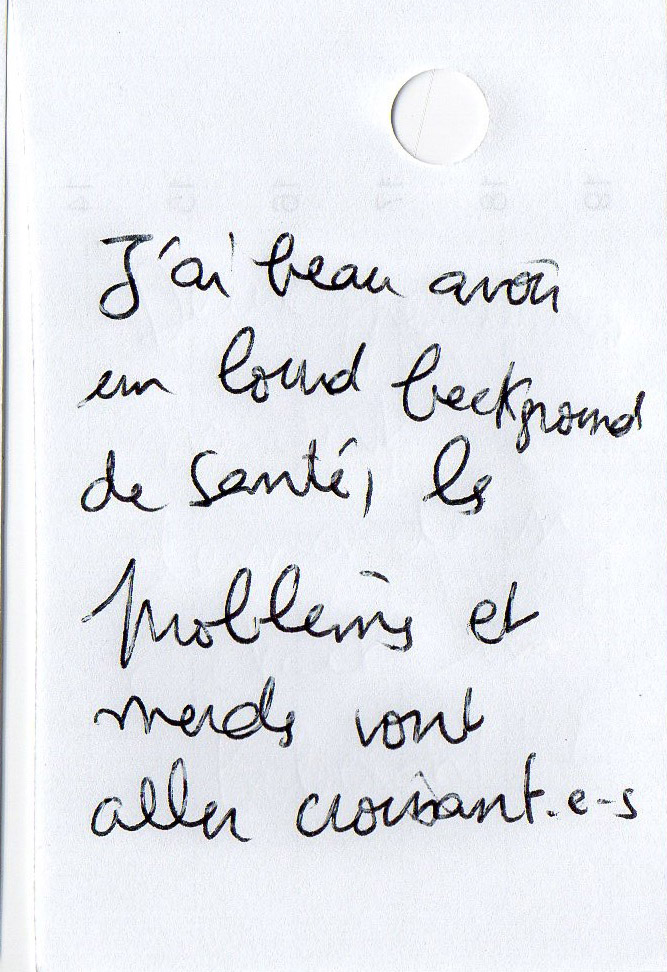 J'ai beau avoir
un lourd background
de santé, les
problèmes et
merdes vont
aller croissant.e-s